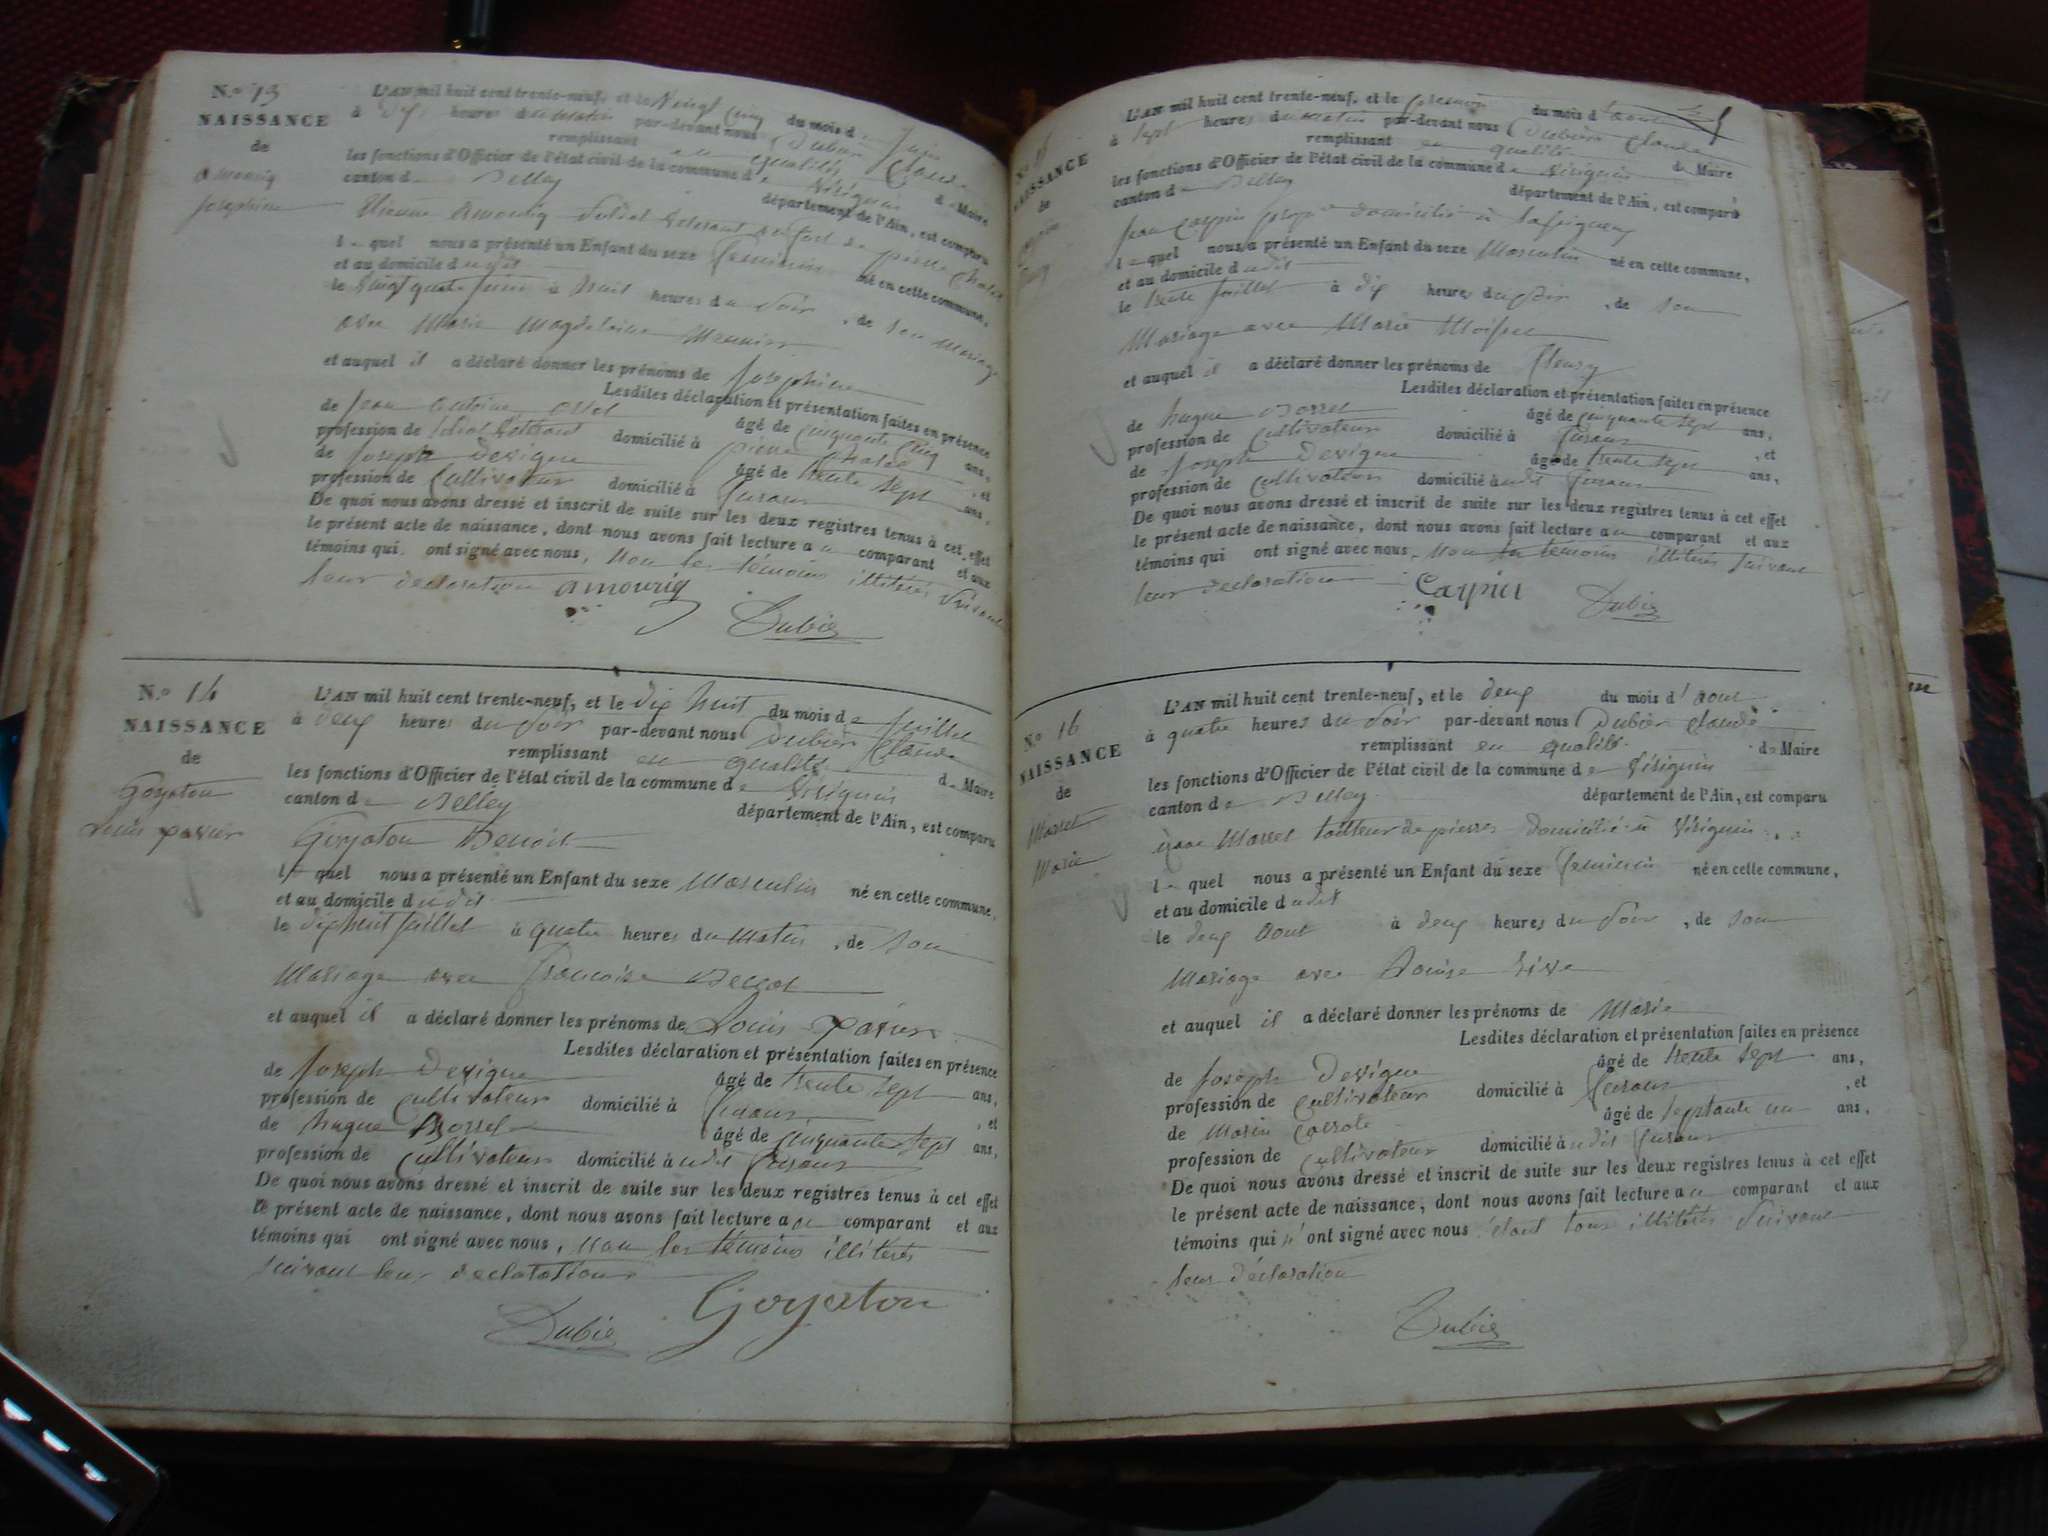 N.o 13
NAISSANCE
de
Amouriq
Josephine
L'AN mil huit cent trente-neuf, et le Vingt Cinq du mois de Juin
à dix heures du matin par-devant nous Dubier Claude
remplissant en qualité de Maire
les fonctions d'Officier de l'état civil de la commune de Virignin
canton de Belley département de l'Ain, est comparu
Etienne Amouriq Soldat au fort de pierre Chatel
lequel nous a présenté un Enfant du sexe feminin né en cette commune,
et au domicile dudit
le Vingt quatre Juin à huit heures du Soir, de son Mariage
avec Marie Magdelaine Meunier
et auquel il a déclaré donner les prénoms de Josephine
Lesdites déclaration et présentation faites en présence
de Jean Antoine âgé de cinquante Cinq ans,
profession de domicilié à pierre Chatel, et
de Joseph Devigne âgé de trente sept ans,
profession de Cultivateur domicilié à
De quoi nous avons dressé et inscrit de suite sur les deux registres tenus à cet effet
le présent acte de naissance, dont nous avons fait lecture au comparant et aux
témoins qui ont signé avec nous, Non les témoins illitérés Suivant
leur declaration Amouriq
Dubier
N.o 14
NAISSANCE
de
Goyaton
Louis xavier
L'AN mil huit cent trente-neuf, et le dix huit du mois de Juillet
à deux heures du Soir par-devant nous Dubier Claude
remplissant en qualité de Maire
les fonctions d'Officier de l'état civil de la commune de Virignin
canton de Belley département de l'Ain, est comparu
Goyaton Benoit
lequel nous a présenté un Enfant du sexe Masculin né en cette commune,
et au domicile dudit
le dix huit Juillet à quatre heures du Matin, de son
Mariage avec Francoise
et auquel il a déclaré donner les prénoms de Louis xavier
Lesdites déclaration et présentation faites en présence
de Joseph Devigne âgé de trente sept ans,
profession de Cultivateur domicilié à, et
de hugue Borrel âgé de Cinquante Sept ans,
profession de Cultivateur domicilié à udit
De quoi nous avons dressé et inscrit de suite sur les deux registres tenus à cet effet
le présent acte de naissance, dont nous avons fait lecture au comparant et aux
témoins qui ont signé avec nous, Non les témoins illiterés
Suivant leur declaration
Dubier Goyaton
NAISSANCE
de
L'AN mil huit cent trente-neuf, et le premier du mois d'aout
à Sept heures du matin par-devant nous Dubier Claude
remplissant en qualité de Maire
les fonctions d'Officier de l'état civil de la commune de Virignin
canton de Belley département de l'Ain, est comparu
Jean Carpin domicilié à
lequel nous a présenté un Enfant du sexe Masculin né en cette commune,
et au domicile dudit
le trente Juillet à dix heures du Soir, de Son
Mariage avec Marie
et auquel il a déclaré donner les prénoms de Fleury
Lesdites déclaration et présentation faites en présence
de hugue Borrel âgé de Cinquante Sept ans,
profession de Cultivateur domicilié à, et
de Joseph Devigne âgé de trente Sept ans,
profession de Cultivateur domicilié à udit
De quoi nous avons dressé et inscrit de suite sur les deux registres tenus à cet effet
le présent acte de naissance, dont nous avons fait lecture au comparant et aux
témoins qui ont signé avec nous, Non les témoins illitérés Suivant
leur declaration Carpin Dubier
N.o 16
NAISSANCE
de
Marret
Marie
L'AN mil huit cent trente-neuf, et le deux du mois d'aout
à quatre heures du Soir par-devant nous Dubier Claude
remplissant en qualité de Maire
les fonctions d'Officier de l'état civil de la commune de Virignin
canton de Belley département de l'Ain, est comparu
Marret tailleur de pierres domicilié à Virignin
lequel nous a présenté un Enfant du sexe feminin né en cette commune,
et au domicile dudit
le deux aout à deux heures du Soir, de Son
Mariage avec Louise
et auquel il a déclaré donner les prénoms de Marie
Lesdites déclaration et présentation faites en présence
de Joseph Devigne âgé de trente Sept ans,
profession de Cultivateur domicilié à, et
de Marin âgé de Septante un ans,
profession de Cultivateur domicilié à udit
De quoi nous avons dressé et inscrit de suite sur les deux registres tenus à cet effet
le présent acte de naissance, dont nous avons fait lecture au comparant et aux
témoins qui n'ont signé avec nous étant tous illitérés Suivant
leur déclaration
Dubier